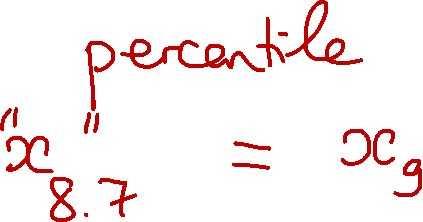 percentile
"x"8.7 = x9